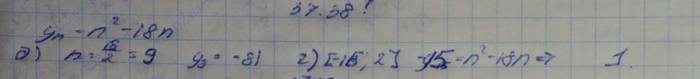 37.38?
yₙ = n² - 18n
а) n = 18/2 = 9 y₉ = -81 2) [-15; 2] -15 = n² - 18n ⇒ 1.